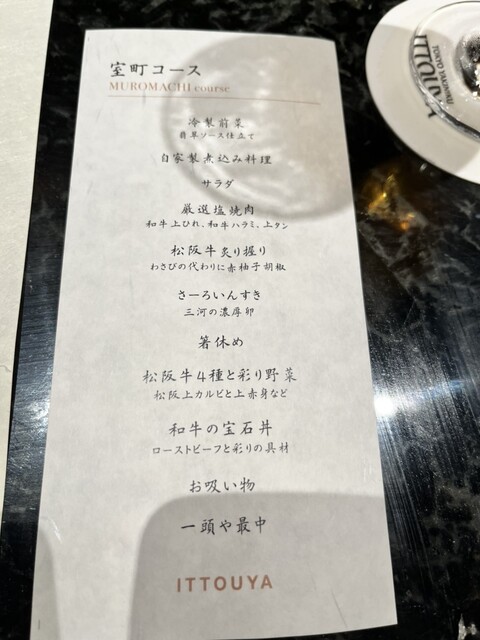 室町コース
MUROMACHI course
冷製前菜
翡翠ソース仕立て
自家製煮込み料理
サラダ
厳選塩焼肉
和牛上ひれ、和牛ハラミ、上タン
松阪牛炙り握り
わさびの代わりに赤柚子胡椒
さーろいんすき
三河の濃厚卵
箸休め
松阪牛4種と彩り野菜
松阪上カルビと上赤身など
和牛の宝石丼
ローストビーフと彩りの具材
お吸い物
一頭や最中
ITTOUYA
ITTOUYA
TOKYO YAKINIKU